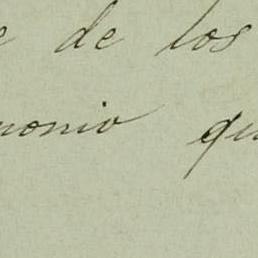 e de los
monio qu